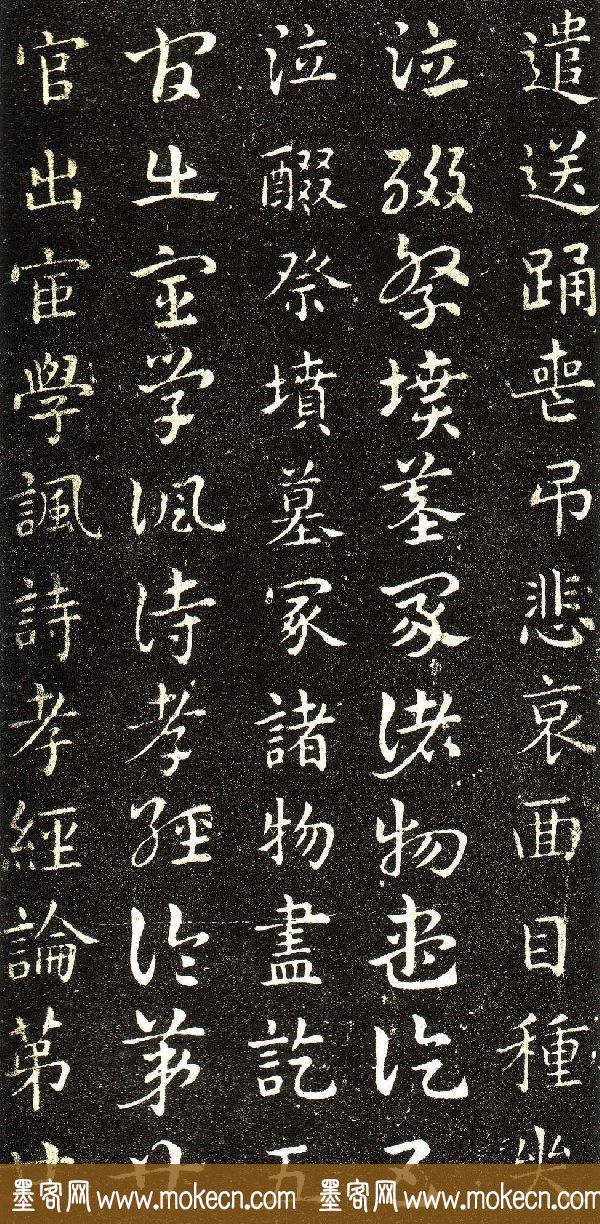 遣送踊喪吊悲哀面目種
泣醊祭墳墓冢諸物盡訖五
泣醊祭墳墓冢諸物盡訖五
官出宦學諷詩孝經論第
官出宦學諷詩孝經論第
墨客网 www.mokecn.com 墨客网 www.mokecn.com